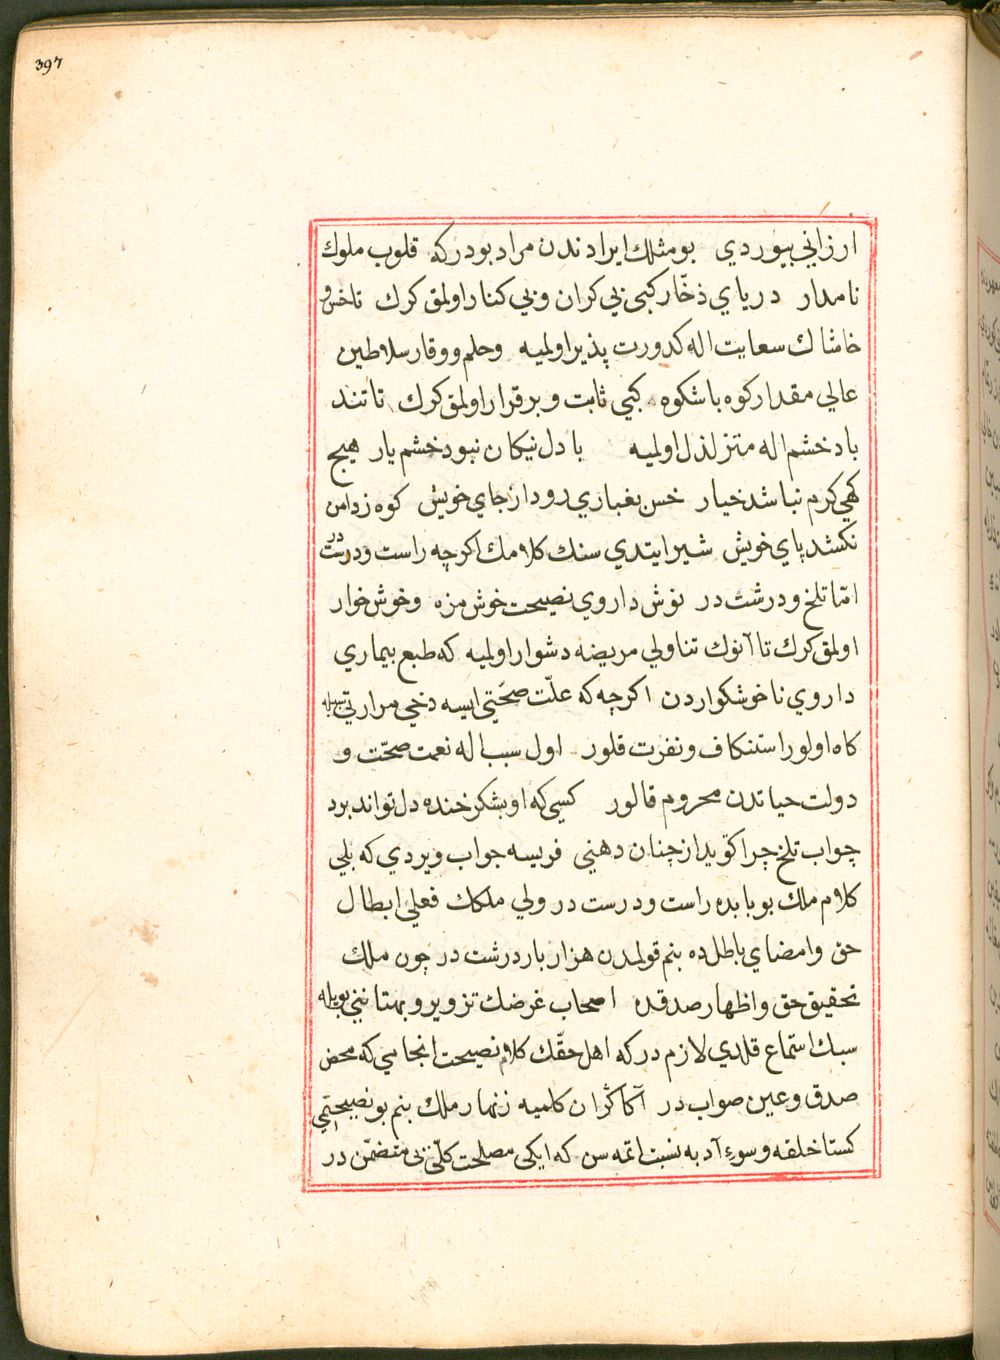 397
ارزاني بيوردي بو مثلك ايرادندن مراد بودركه قلوب ملوك
نامدار درياي ذخّار كبي بي كران وبي كنار اولمق كرك تا خس و
خاشاك سعايت اله كدورت پذير اولميه وحلم ووقار سلاطين
عالي مقدار كوه با شكوه كبي ثابت و برقرار اولمق كرك تا تند
باد خشم اله متزلزل اولميه با دل نيكان نبود خشم يار هيچ
كهي كرم نباشد خيار خس بغباري رود از جاي خويش كوه ز دامن
نكشد پاي خويش شير ايتدي سنك كلامك اكرچه راست ودرست در
امّا تلخ ودرشت در نوش داروي نصيحت خوش مزه وخوش خوار
اولمق كرك تا آنوك تناولي مريضه دشوار اولميه كه طبع بيماري
داروي ناخوشكواردن اكرچه كه علّت صحّتي ايسه دخي مرارتي سببيله
كاه اولور استنكاف ونفرت قلور اول سبب اله نعمت صحّت و
دولت حياتدن محروم قالور كسي كه او بشكر خنده دل تواند برد
جواب تلخ چرا كويد از چنان دهني فريسه جواب ويردي كه بلي
كلام ملك بو بابده راست ودرست در ولي ملكك فعلي ابطال
حق وامضاي باطل ده بنم قولمدن هزار بار درشت در چون ملك
تحقيق حق واظهار صدقده اصحاب غرضك تزوير وبهتانني بويله
سبك استماع قلدي لازم دركه اهل حقّك كلام نصيحت انجامي كه محض
صدق وعين صواب در آكا كران كلميه زنهار ملك بنم بو نصيحتمي
كستاخلغه وسوء آدبه نسبت اتمه سن كه ايكي مصلحت كلّي يي متضمّن در